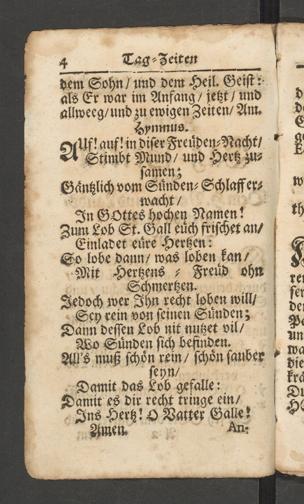 4 Tag-Zeiten
dem Sohn/ und dem Heil. Geist:
als Er war im Anfang/ jetzt/ und
allweeg/ und zu ewigen Zeiten/ Am.
Hymnus.
AUf! auf! in diser Freüden-Nacht/
Stimbt Mund/ und Hertz zu-
samen;
Gäntzlich vom Sünden-Schlaff er-
wacht/
In GOttes hochen Namen!
Zum Lob St. Gall eüch frischet an/
Einladet eüre Hertzen:
So lobe dann/ was loben kan/
Mit Hertzens-Freüd ohn
Schmertzen.
Jedoch wer Ihn recht loben will/
Sey rein von seinen Sünden;
Dann dessen Lob nit nutzet vil/
Wo Sünden sich befinden.
All's muß schön rein/ schön sauber
seyn/
Damit das Lob gefalle:
Damit es dir recht tringe ein/
Ins Hertz! O Vatter Galle!
Amen. An-